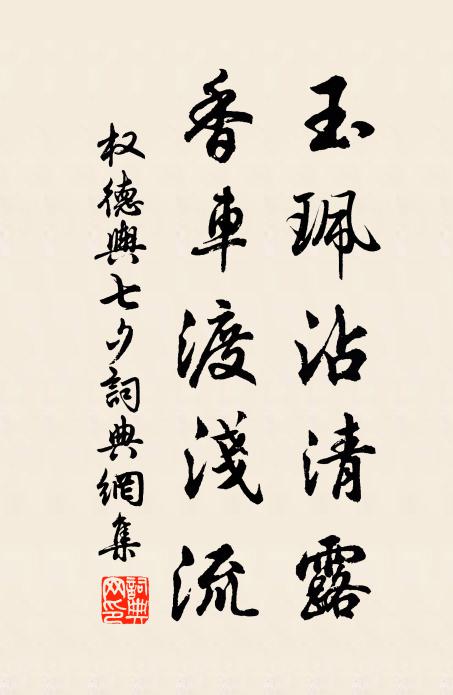 玉珮沾清露
香車渡淺流
权德輿七夕詞典網集
詞典网印